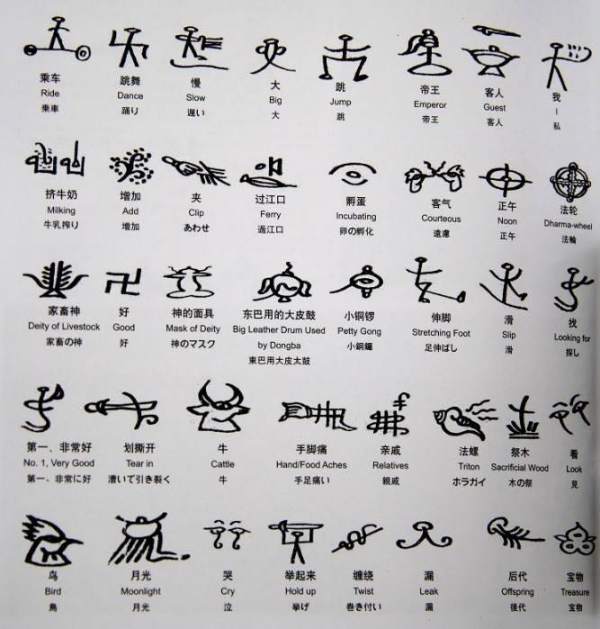 乘车 跳舞 慢 大 跳 帝王 客人 我
Ride Dance Slow Big Jump Emperor Guest I
乗車 踊り 遅い 大 跳 帝王 客人 私
挤牛奶 增加 夹 过江口 孵蛋 客气 正午 法轮
Milking Add Clip Ferry Incubating Courteous Noon Dharma-wheel
牛乳搾り 增加 あわせ 過江口 卵の孵化 遠慮 正午 法輪
家畜神 好 神的面具 东巴用的大皮鼓 小铜锣 伸脚 滑 找
Deity of Livestock Good Mask of Deity Big Leather Drum Used Petty Gong Stretching Foot Slip Looking for
家畜の神 好 神のマスク by Dongba 小銅鑼 足伸ばし 滑 探し
東巴用大皮太鼓
第一、非常好 划撕开 牛 手脚痛 亲戚 法螺 祭木 看
No. 1, Very Good Tear in Cattle Hand/Food Aches Relatives Triton Sacrificial Wood Look
第一、非常に好 漕いで引き裂く 牛 手足痛い 親戚 ホラガイ 木の祭 見
鸟 月光 哭 举起来 缠绕 漏 后代 宝物
Bird Moonlight Cry Hold up Twist Leak Offspring Treasure
鳥 月光 泣 挙げ 巻き付い 漏 後代 宝物